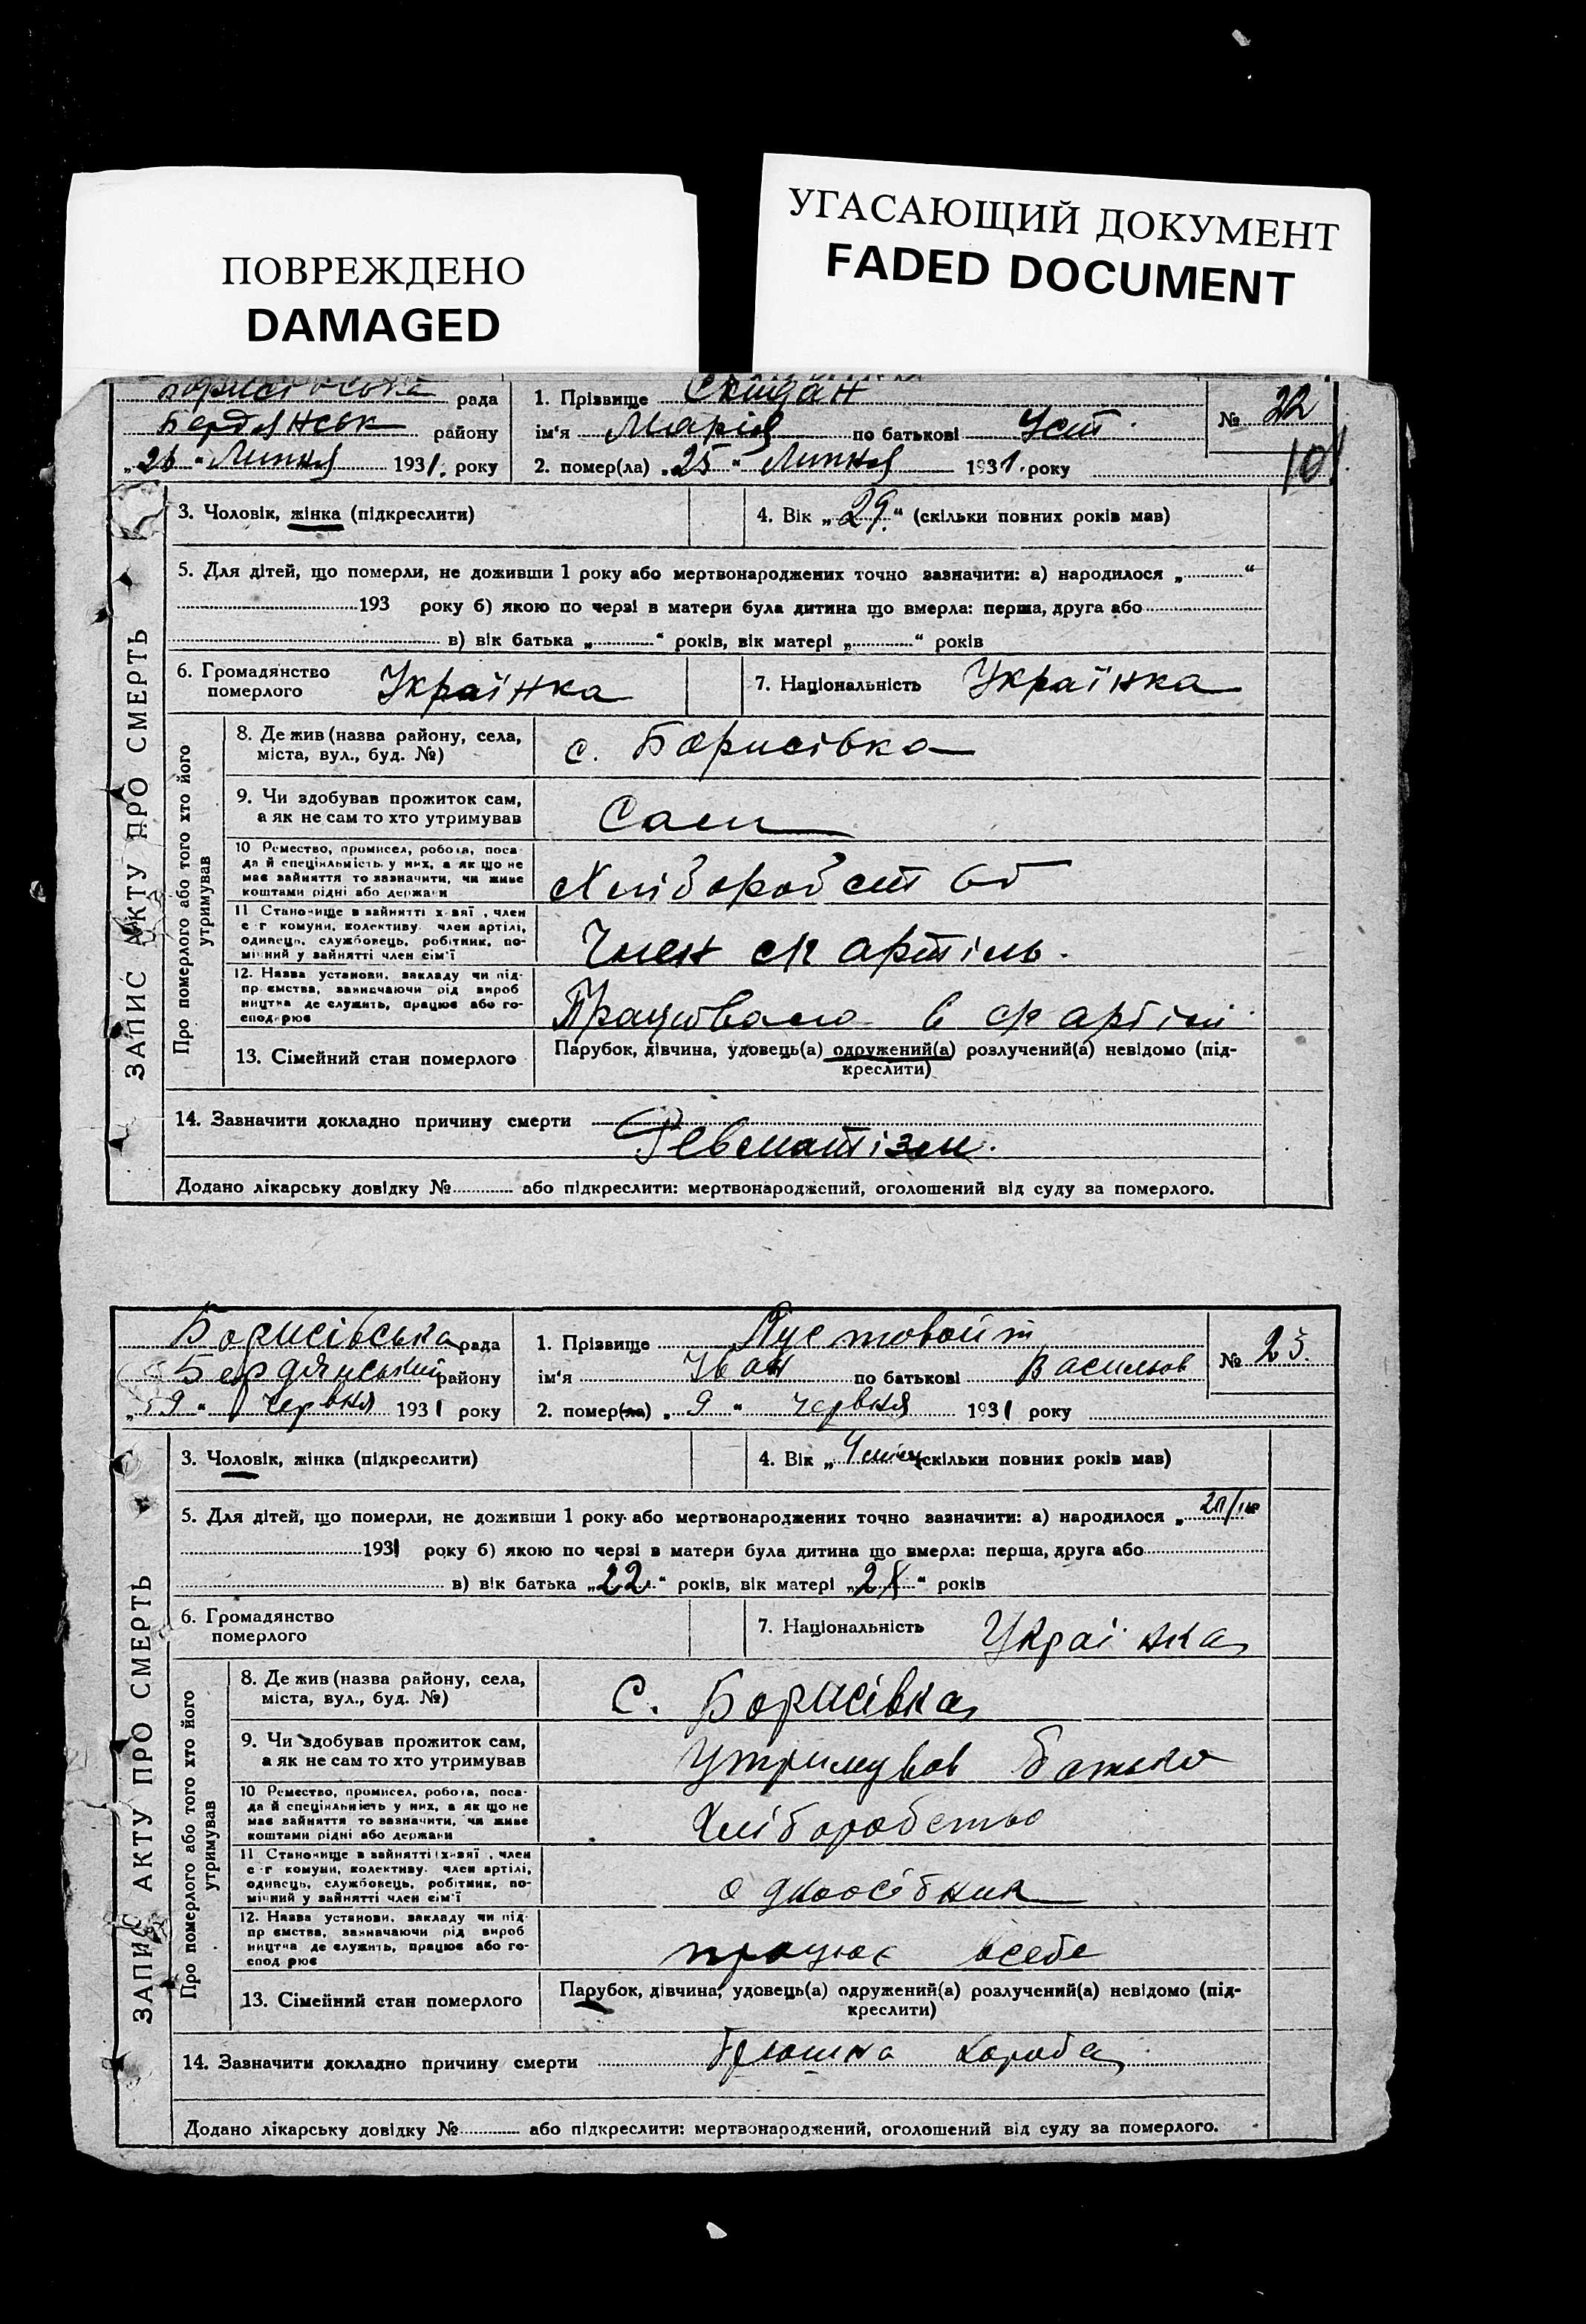 ПОВРЕЖДЕНО
DAMAGED
УГАСАЮЩИЙ ДОКУМЕНТ
FADED DOCUMENT
ЗАПИС АКТУ ПРО СМЕРТЬ
рада 1. Прізвище Скидан № 22
Бердянськ району ім'я Марія по батькові Уст. 10
„26“ Липня 1931. року 2. помер(ла) „25“ Липня 1931. року
3. Чоловік, жінка (підкреслити) 4. Вік „29.“ (скільки повних років мав)
5. Для дітей, що померли, не доживши 1 року або мертвонароджених точно зазначити: а) народилося „ “
193 року б) якою по черзі в матери була дитина що вмерла: перша, друга або
в) вік батька „ “ років, вік матері „ “ років
6. Громадянство померлого Українка 7. Національність Українка
Про померлого або того хто його утримував
8. Де жив (назва району, села,
міста, вул., буд. №) с. Борисівка
9. Чи здобував прожиток сам,
а як не сам то хто утримував Сам
10 Ремество, промисел, робота, поса-
да й спеціяльність у них, а як що не
має зайняття то зазначити, чи живе
коштами рідні або держави Хліборобст
11 Становище в зайнятті х-вяї, член
с-г комуни, колективу, член артілі,
одинець, службовець, робітник, по-
мічний у зайнятті член сім'ї Член ср артіль.
12. Назва установи, закладу чи під-
приємства, зазначаючи рід вироб
ництва де служить, працює або го-
сподарює Працювала в ср артілі
13. Сімейний стан померлого Парубок, дівчина, удовець(а) одружений(а) розлучений(а) невідомо (під-
креслити)
14. Зазначити докладно причину смерти Ревматізм.
Додано лікарську довідку № або підкреслити: мертвонароджений, оголошений від суду за померлого.
ЗАПИС АКТУ ПРО СМЕРТЬ
Борисівська рада 1. Прізвище Пустовойт № 23.
Бердянський району ім'я Іван по батькові Василів
„9“ червня 1931 року 2. помер(ла) „9“ червня 1931 року
3. Чоловік, жінка (підкреслити) 4. Вік „ (скільки повних років мав)
5. Для дітей, що померли, не доживши 1 року або мертвонароджених точно зазначити: а) народилося „
1931 року б) якою по черзі в матери була дитина що вмерла: перша, друга або
в) вік батька „22“ років, вік матері „ “ років
6. Громадянство померлого 7. Національність Українка
Про померлого або того хто його утримував
8. Де жив (назва району, села,
міста, вул., буд. №) С. Борисівка
9. Чи здобував прожиток сам,
а як не сам то хто утримував Утримував батько
10 Ремество, промисел, робота, поса-
да й спеціяльність у них, а як що не
має зайняття то зазначити, чи живе
коштами рідні або держави Хліборобство
11 Становище в зайнятті х-вяї, член
с-г комуни, колективу, член артілі,
одинець, службовець, робітник, по-
мічний у зайнятті член сім'ї одноосібник
12. Назва установи, закладу чи під-
приємства, зазначаючи рід вироб
ництва де служить, працює або го-
сподарює працює всебе
13. Сімейний стан померлого Парубок, дівчина, удовець(а) одружений(а) розлучений(а) невідомо (під-
креслити)
14. Зазначити докладно причину смерти Брюшна хороба
Додано лікарську довідку № або підкреслити: мертвонароджений, оголошений від суду за померлого.